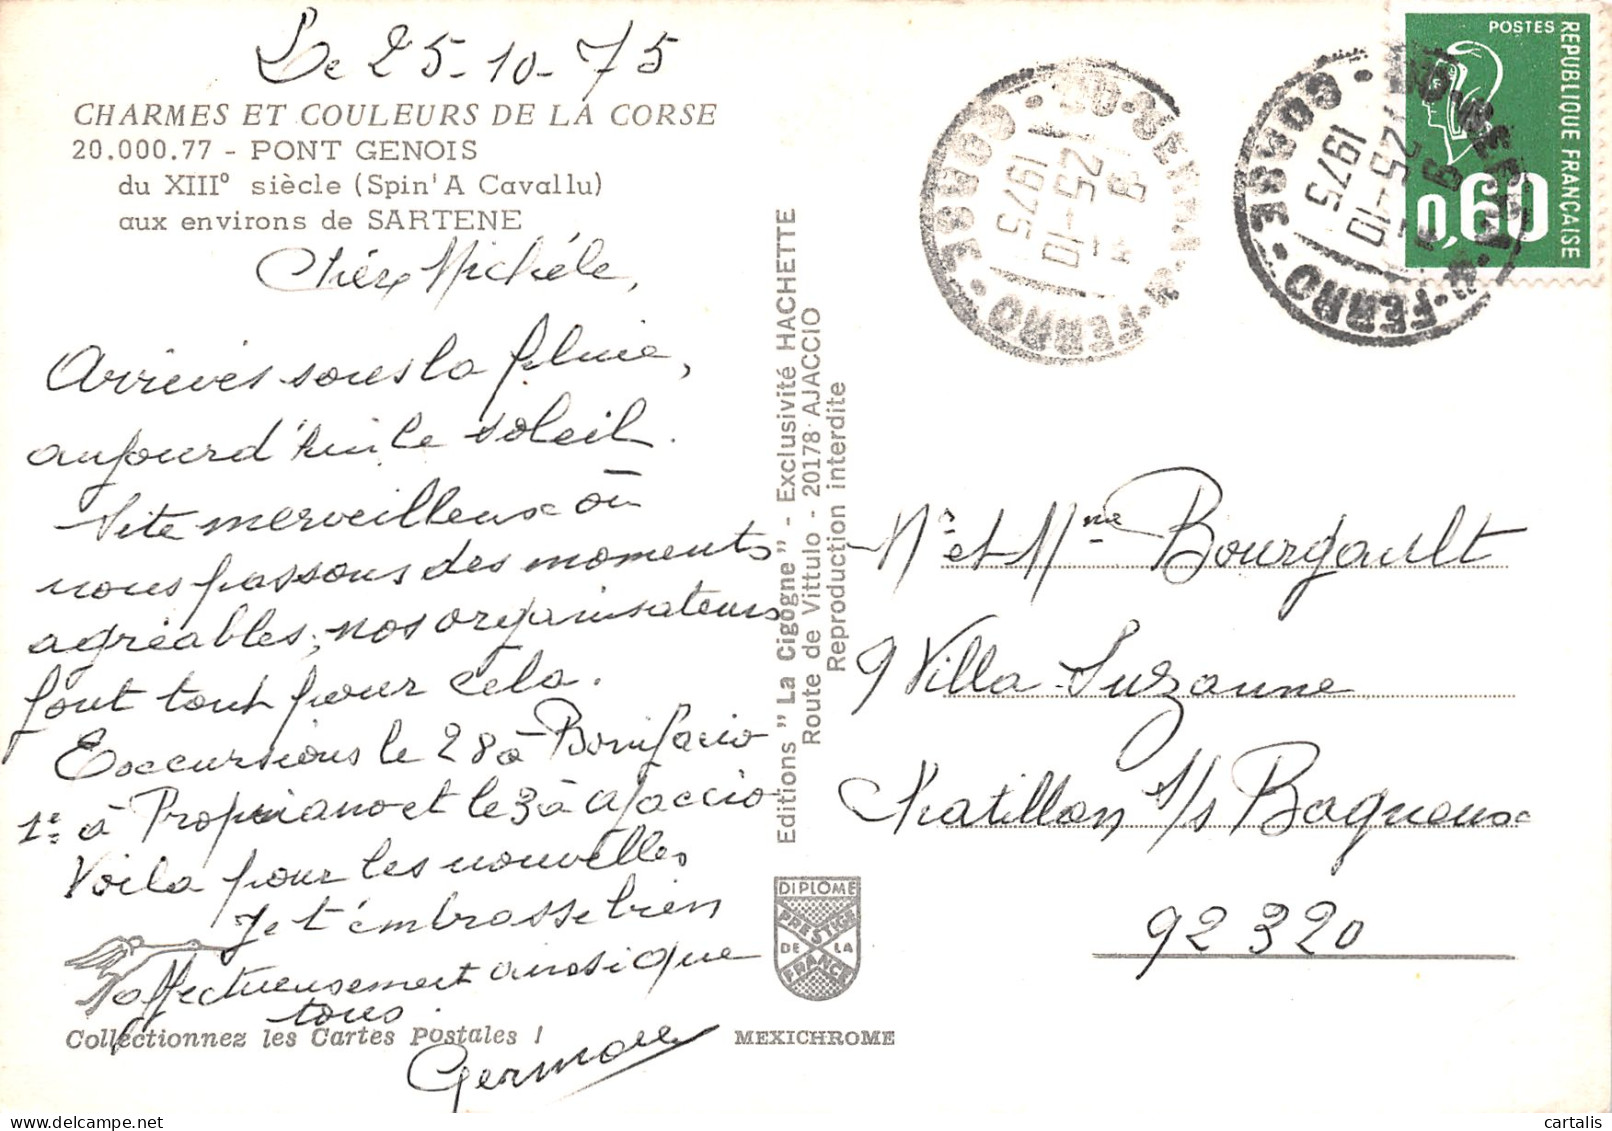 Le 25-10-75
CHARMES ET COULEURS DE LA CORSE
20.000.77 - PONT GENOIS
du XIII° siècle (Spin' A Cavallu)
aux environs de SARTENE
Chère Michèle,
Arrivés sous la pluie,
aujourd'hui le soleil.
Site merveilleux où
nous passons des moments
agréables, nos organisateurs
font tout pour cela.
Excursions le 28 à Bonifacio
1er à Propriano et le 3 à Ajaccio
Voila pour les nouvelles
Je t'embrasse bien
affectueusement ainsi que
tous.
Germaine
Collectionnez les Cartes Postales !
Editions "La Cigogne" - Exclusivité HACHETTE
Route de Vittulo - 20178 - AJACCIO
Reproduction interdite
DIPLOME
PRESTIGE
DE LA
FRANCE
MEXICHROME
9 H
25-10
1975
CORSE
FERRO
9 H
25-10
1975
CORSE - FERRO
POSTES
REPUBLIQUE FRANÇAISE
0,60
Mr et Mme Bourgault
9 Villa Suzanne
Chatillon s/s Bagneux
92320
cartalis